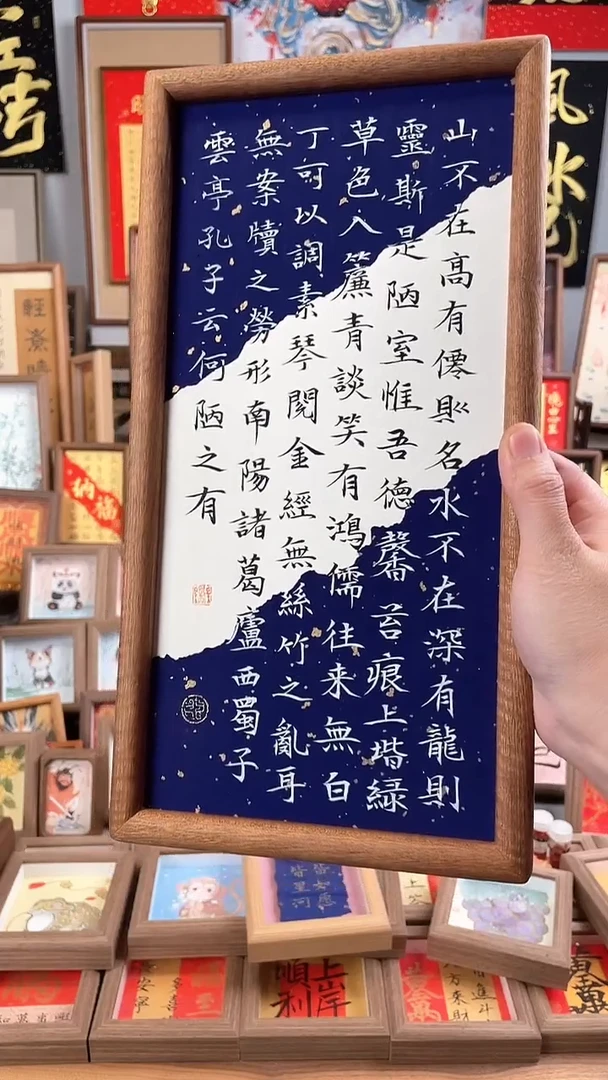 山不在高有僊則名水不在深有龍則
靈斯是陋室惟吾德馨苔痕上堦緑
草色入簾青談笑有鴻儒往来無白
丁可以調素琴閲金經無絲竹之亂耳
無案牘之勞形南陽諸葛廬西蜀子
雲亭孔子云何陋之有
風
納福
上岸
順利